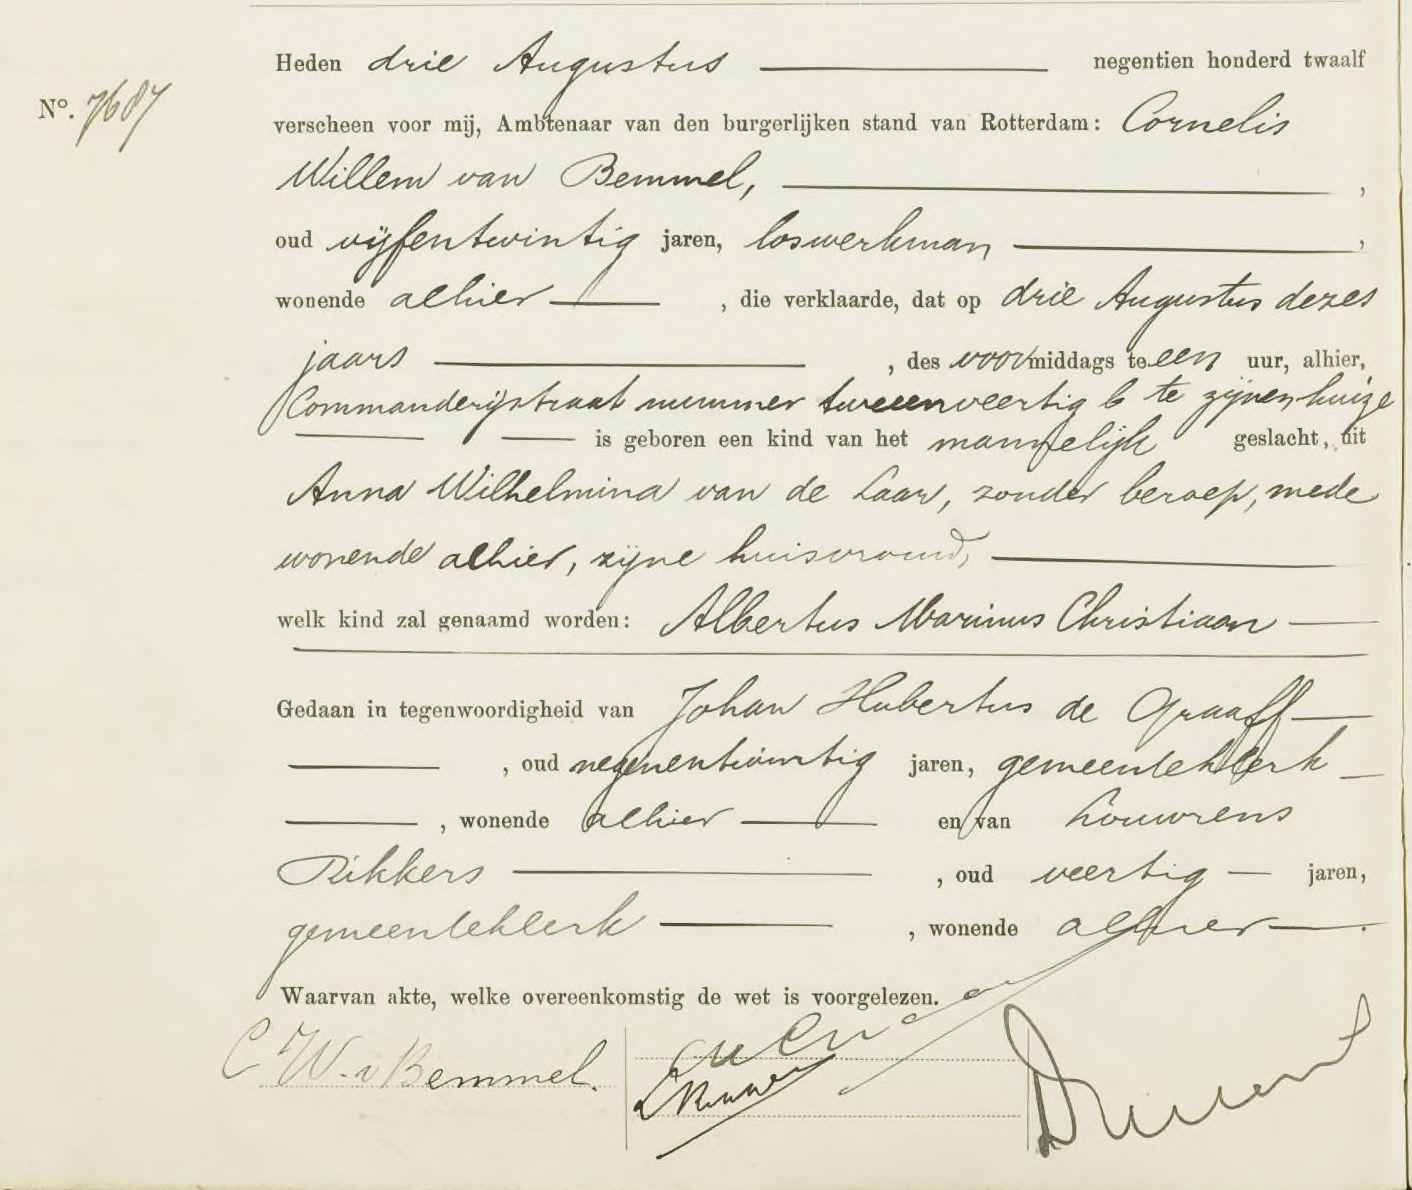 Heden drie Augustus negentien honderd twaalf
No. 7687
verscheen voor mij, Ambtenaar van den burgerlijken stand van Rotterdam: Cornelis
Willem van Bemmel, ,
oud vijfentwintig jaren, loswerkman ,
wonende alhier , die verklaarde, dat op drie Augustus dezes
jaars , des voormiddags te een uur, alhier,
Commanderijstraat nummer tweeenveertig b te zijnen huize
is geboren een kind van het mannelijk geslacht, uit
Anna Wilhelmina van de Laar, zonder beroep, mede
wonende alhier, zijne huisvrouw,
welk kind zal genaamd worden: Albertus Marinus Christiaan
Gedaan in tegenwoordigheid van Johan Hubertus de Graaff
, oud negenentwintig jaren, gemeenteklerk
, wonende alhier en van Louwrens
Rikkers , oud veertig jaren,
gemeenteklerk , wonende alhier .
Waarvan akte, welke overeenkomstig de wet is voorgelezen.
C W. v Bemmel.